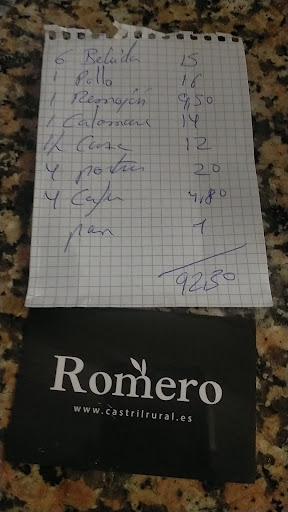 6 Bebida 15
1 Pollo 16
1 Remojón 9,50
1 Calamare 14
1/2 12
4 postres 20
4 Cafes 4,80
pan 1
92,30
Romero
www.castrilrural.es